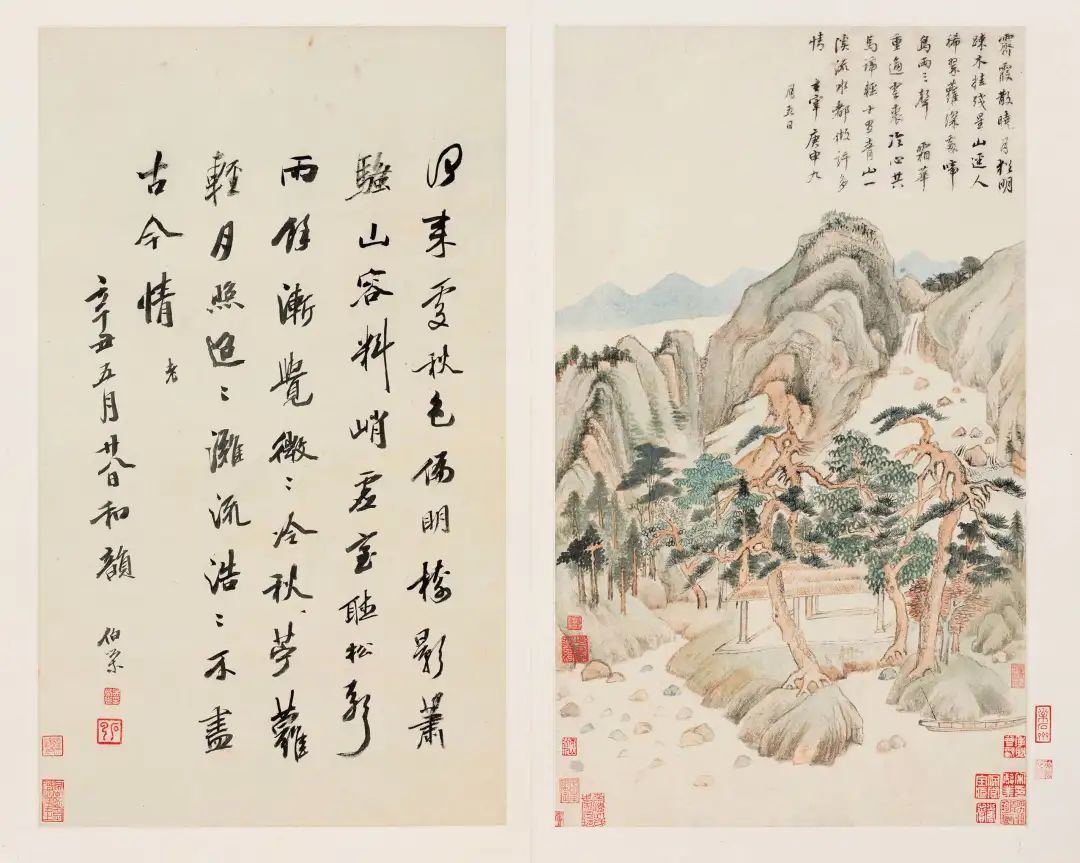 霽霞散曉月猶明
疎木挂殘星山逕人
稀翠蘿深處啼
鳥兩三聲 霜華
重逼雲裘冷心共
馬蹄輕十里青山一
溪流水都做許多
情 玄宰 庚申九
月五日
來處秋色偏明樹影蕭
騷山容料峭虛室聽松聲
雨餘漸覺微〻冷秋、薜蘿
輕月照迢〻灘流浩〻不盡
古今情 老
辛丑五月廿八日和韻 伯榮